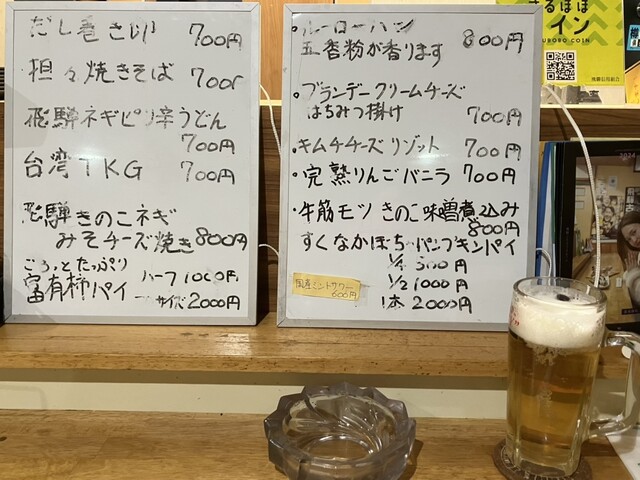 だし巻き卵 700円
担々焼きそば 700r
飛騨ネギピリ辛うどん
700円
台湾TKG 700円
飛騨きのこネギ
みそチーズ焼き 800円
ごろっとたっぷり
富有柿パイ
ハーフ 1000円
一サイズ 2000円
・ルーローハン
五香粉が香ります 800円
・ブランデークリームチーズ
はちみつ掛け 700円
・キムチチーズリゾット 700円
・完熟りんごバニラ 700円
・牛筋モツきのこ味噌煮込み
800円
すくなかぼちゃパンプキンパイ
1/4 500円
1/2 1000円
1本 2000円
国産ミントサワー
600円
るぼぼ
イン
BOBO COIN
2024